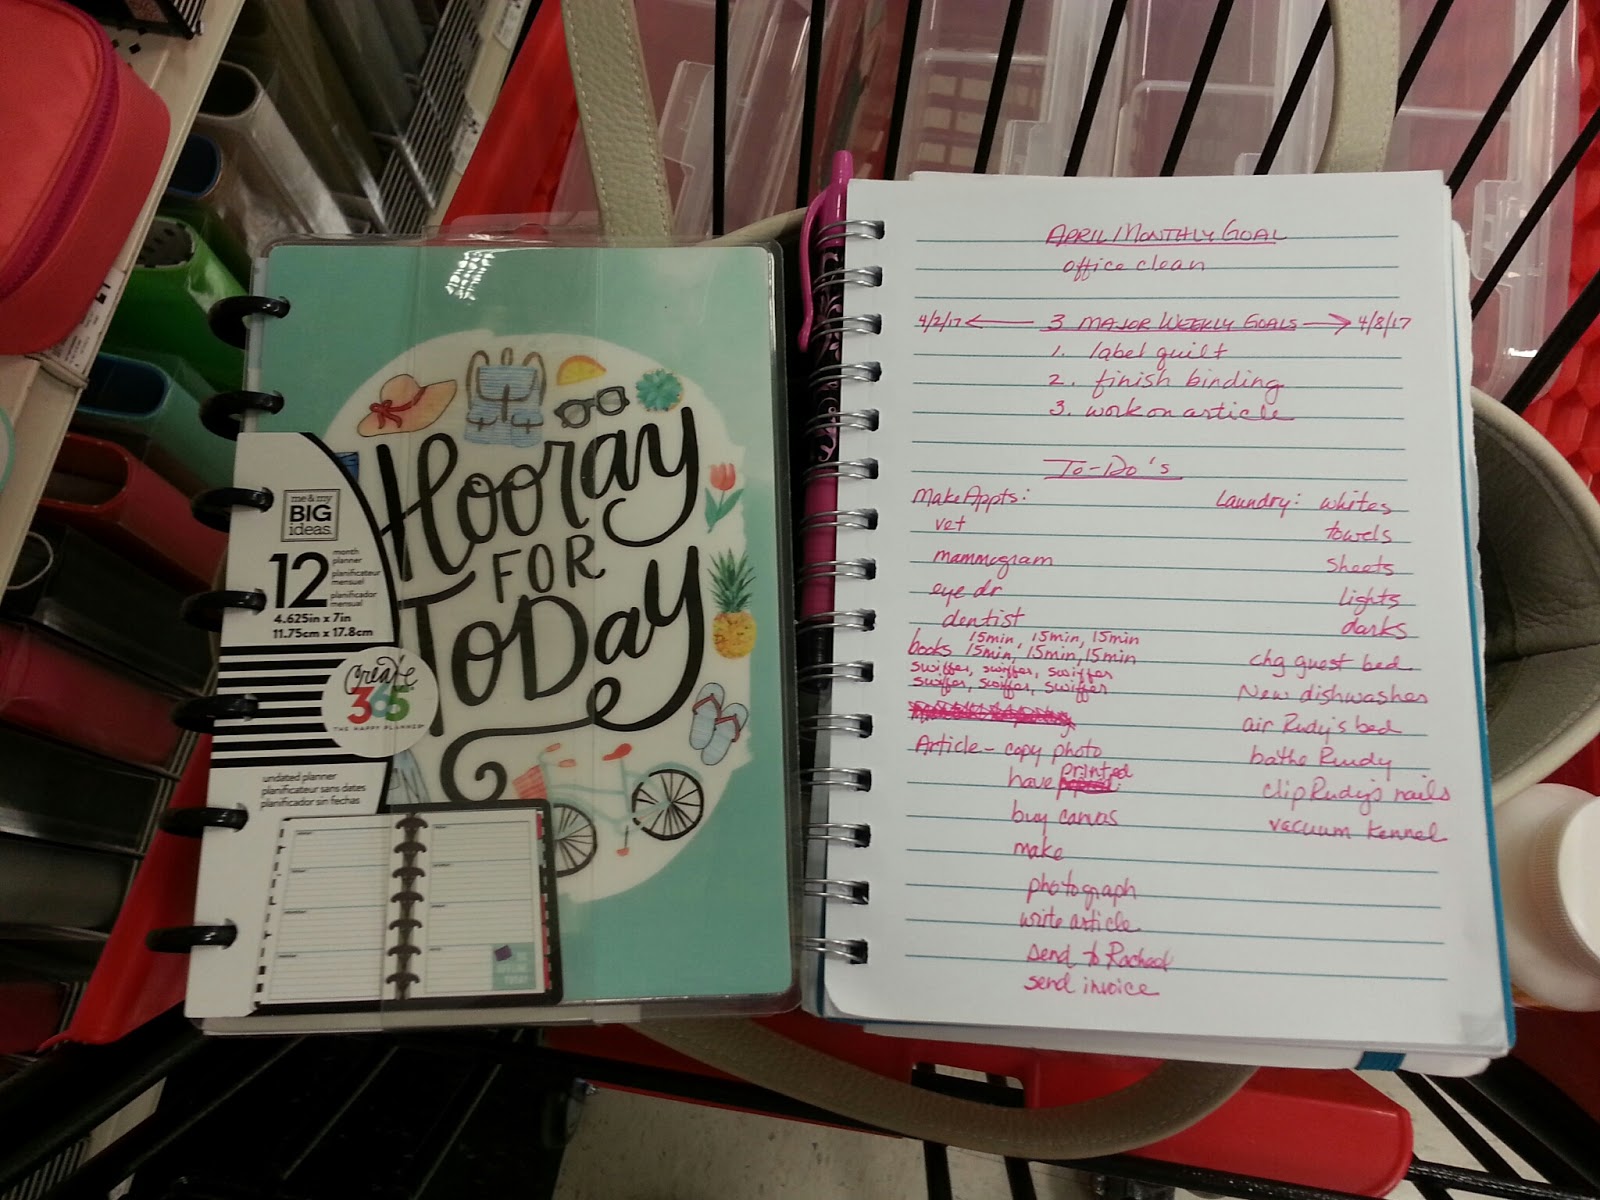 Hooray
for
Today
me & my
BIG
ideas.
12
month
planner
planificateur
mensuel
planificador
mensual
4.625in x 7in
11.75cm x 17.8cm
Create
365
THE HAPPY PLANNER
undated planner
planificateur sans dates
planificador sin fechas
April Monthly Goal
office clean
4/2/17 ← 3 Major Weekly Goals → 4/8/17
1. label quilt
2. finish binding
3. work on article
To-Do's
Make Appts:
vet
mammogram
eye dr
dentist
15min, 15min, 15min
books 15min, 15min, 15min
swiffer, swiffer, swiffer
swiffer, swiffer, swiffer
Article - copy photo
have printed
buy canvas
make
photograph
write article
send to Rachael
send invoice
Laundry: whites
towels
sheets
lights
darks
chg guest bed
New dishwasher
air Rudy's bed
bathe Rudy
clip Rudy's nails
vacuum kennel